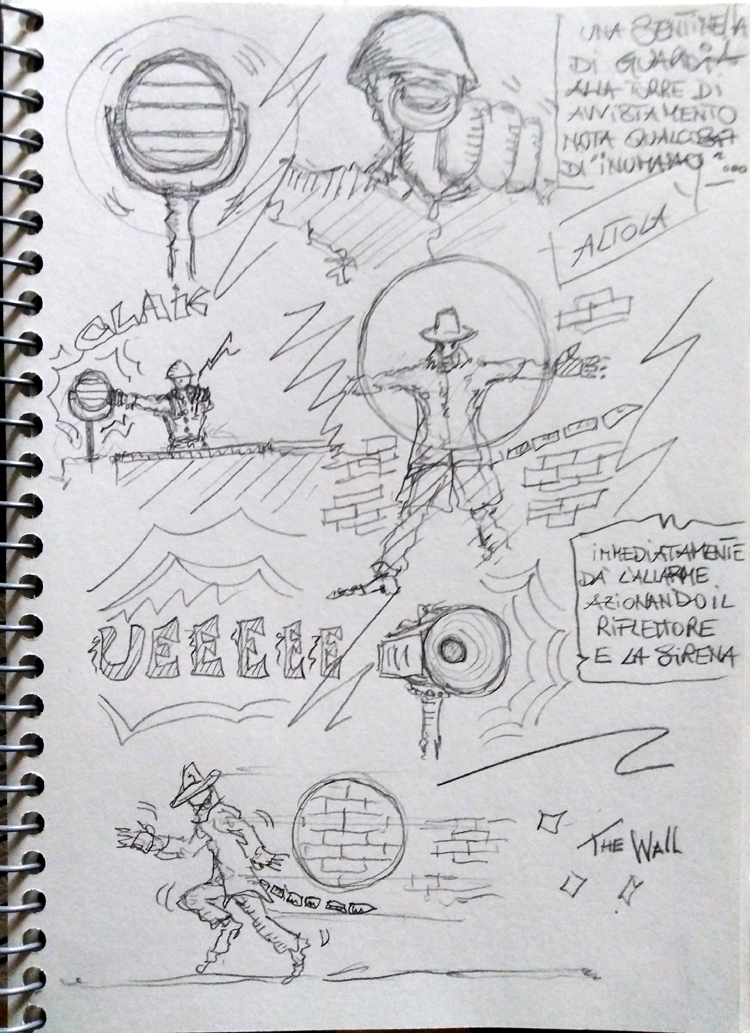 UNA SENTINELLA
DI GUARDIA
ALLA TORRE DI
AVVISTAMENTO
NOTA QUALCOSA
DI "INUMANO"...
ALTOLA
CLAIK
UEEEEE
IMMEDIATAMENTE
DÀ L'ALLARME
AZIONANDO IL
RIFLETTORE
E LA SIRENA
THE WALL